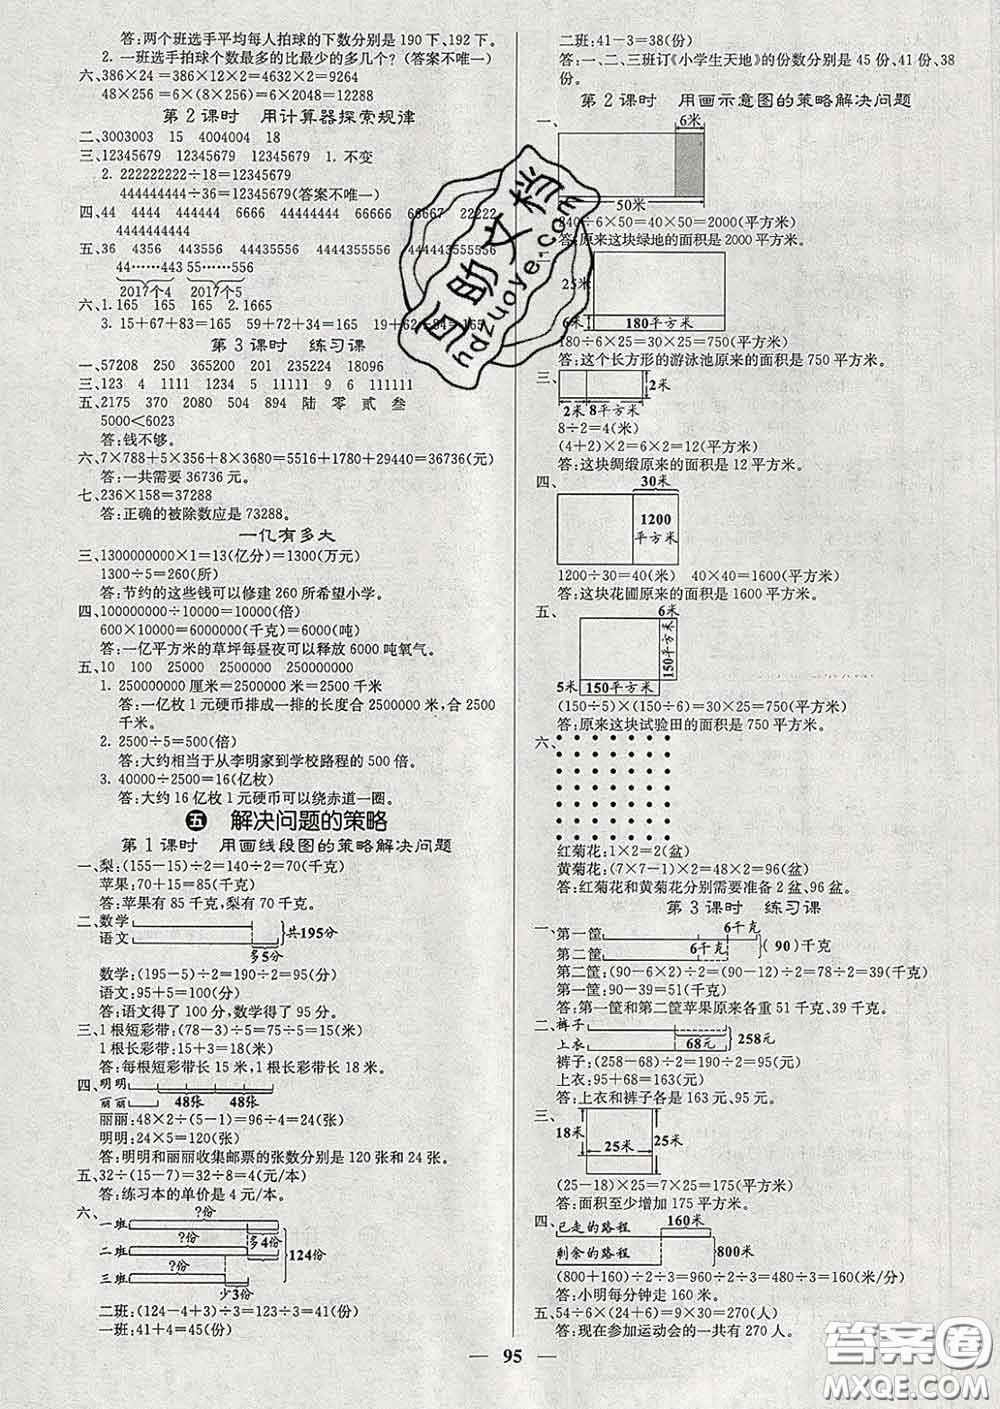 答:两个班选手平均每人拍球的下数分别是190下、192下。
2. 一班选手拍球个数最多的比最少的多几个?(答案不唯一)
六、386×24=386×12×2=4632×2=9264
48×256=6×(8×256)=6×2048=12288
第2课时 用计算器探索规律
二、3003003 15 4004004 18
三、12345679 12345679 12345679 1. 不变
2. 222222222÷18=12345679
444444444÷36=12345679(答案不唯一)
四、44 4444 444444 6666 44444444 66666 66667 22222
4444444444
五、36 4356 443556 44435556 4444355556 444443555556
44……443 55……556
2017个4 2017个5
六、1. 165 165 165 2. 1665
3. 15+67+83=165 59+72+34=165 19+62+84=165
第3课时 练习课
一、57208 250 365200 201 235224 18096
三、123 4 1111 1234 5 11111 9 6 111111
五、2175 370 2080 504 894 陆 零 贰 叁
5000<6023
答:钱不够。
六、7×788+5×356+8×3680=5516+1780+29440=36736(元)
答:一共需要36736元。
七、236×158=37288
答:正确的被除数应是73288。
一亿有多大
三、1300000000×1=13(亿分)=1300(万元)
1300÷5=260(所)
答:节约的这些钱可以修建260所希望小学。
四、100000000÷10000=10000(倍)
600×10000=6000000(千克)=6000(吨)
答:一亿平方米的草坪每昼夜可以释放6000吨氧气。
五、10 100 25000 2500000 250000000
1. 250000000厘米=2500000米=2500千米
答:一亿枚1元硬币排成一排的长度合2500000米,合2500
千米。
2. 2500÷5=500(倍)
答:大约相当于从李明家到学校路程的500倍。
3. 40000÷2500=16(亿枚)
答:大约16亿枚1元硬币可以绕赤道一圈。
五 解决问题的策略
第1课时 用画线段图的策略解决问题
一、梨:(155-15)÷2=140÷2=70(千克)
苹果:70+15=85(千克)
答:苹果有85千克,梨有70千克。
二、数学
语文
多5分
共195分
数学:(195-5)÷2=190÷2=95(分)
语文:95+5=100(分)
答:语文得了100分,数学得了95分。
三、1根短彩带:(78-3)÷5=75÷5=15(米)
1根长彩带:15+3=18(米)
答:每根短彩带长15米,1根长彩带长18米。
四、明明
丽丽 48张 48张
丽丽:48×2÷(5-1)=96÷4=24(张)
明明:24×5=120(张)
答:明明和丽丽收集邮票的张数分别是120张和24张。
五、32÷(15-7)=32÷8=4(元/本)
答:练习本的单价是4元/本。
六、
?份
一班
?份 多4份
二班 124份
?份
三班
少3份
二班:(124-4+3)÷3=123÷3=41(份)
一班:41+4=45(份)
二班:41-3=38(份)
答:一、二、三班订《小学生天地》的份数分别是45份、41份、38
份。
第2课时 用画示意图的策略解决问题
一、
6米
50米
840÷6×50=40×50=2000(平方米)
答:原来这块绿地的面积是2000平方米。
25米
6米 180平方米
180÷6×25=30×25=750(平方米)
答:这个长方形的游泳池原来的面积是750平方米。
三、
2米
2米 8平方米
8÷2=4(米)
(4+2)×2=6×2=12(平方米)
答:这块绸缎原来的面积是12平方米。
四、
30米
1200
平方米
1200÷30=40(米) 40×40=1600(平方米)
答:这块花圃原来的面积是1600平方米。
五、
6米
150平方米
5米 150平方米
(150÷5)×(150÷6)=30×25=750(平方米)
答:原来这块试验田的面积是750平方米。
六、
红菊花:1×2=2(盆)
黄菊花:(7×7-1)×2=48×2=96(盆)
答:红菊花和黄菊花分别需要准备2盆、96盆。
第3课时 练习课
一、第一筐 6千克
第二筐 6千克 (90)千克
第二筐:(90-6×2)÷2=(90-12)÷2=78÷2=39(千克)
第一筐:90-39=51(千克)
答:第一筐和第二筐苹果原来各重51千克、39千克。
二、裤子
上衣 68元 258元
裤子:(258-68)÷2=190÷2=95(元)
上衣:95+68=163(元)
答:上衣和裤子各是163元、95元。
三、
18米 25米 25米
(25-18)×25=7×25=175(平方米)
答:面积至少增加175平方米。
四、已走的路程 160米
剩余的路程 800米
(800+160)÷2÷3=960÷2÷3=480÷3=160(米/分)
答:小明每分钟走160米。
五、54÷6×(24+6)=9×30=270(人)
答:现在参加运动会的一共有270人。
95
互助文档
yzpyonzuoye.com
答案圈
MXQE.COM